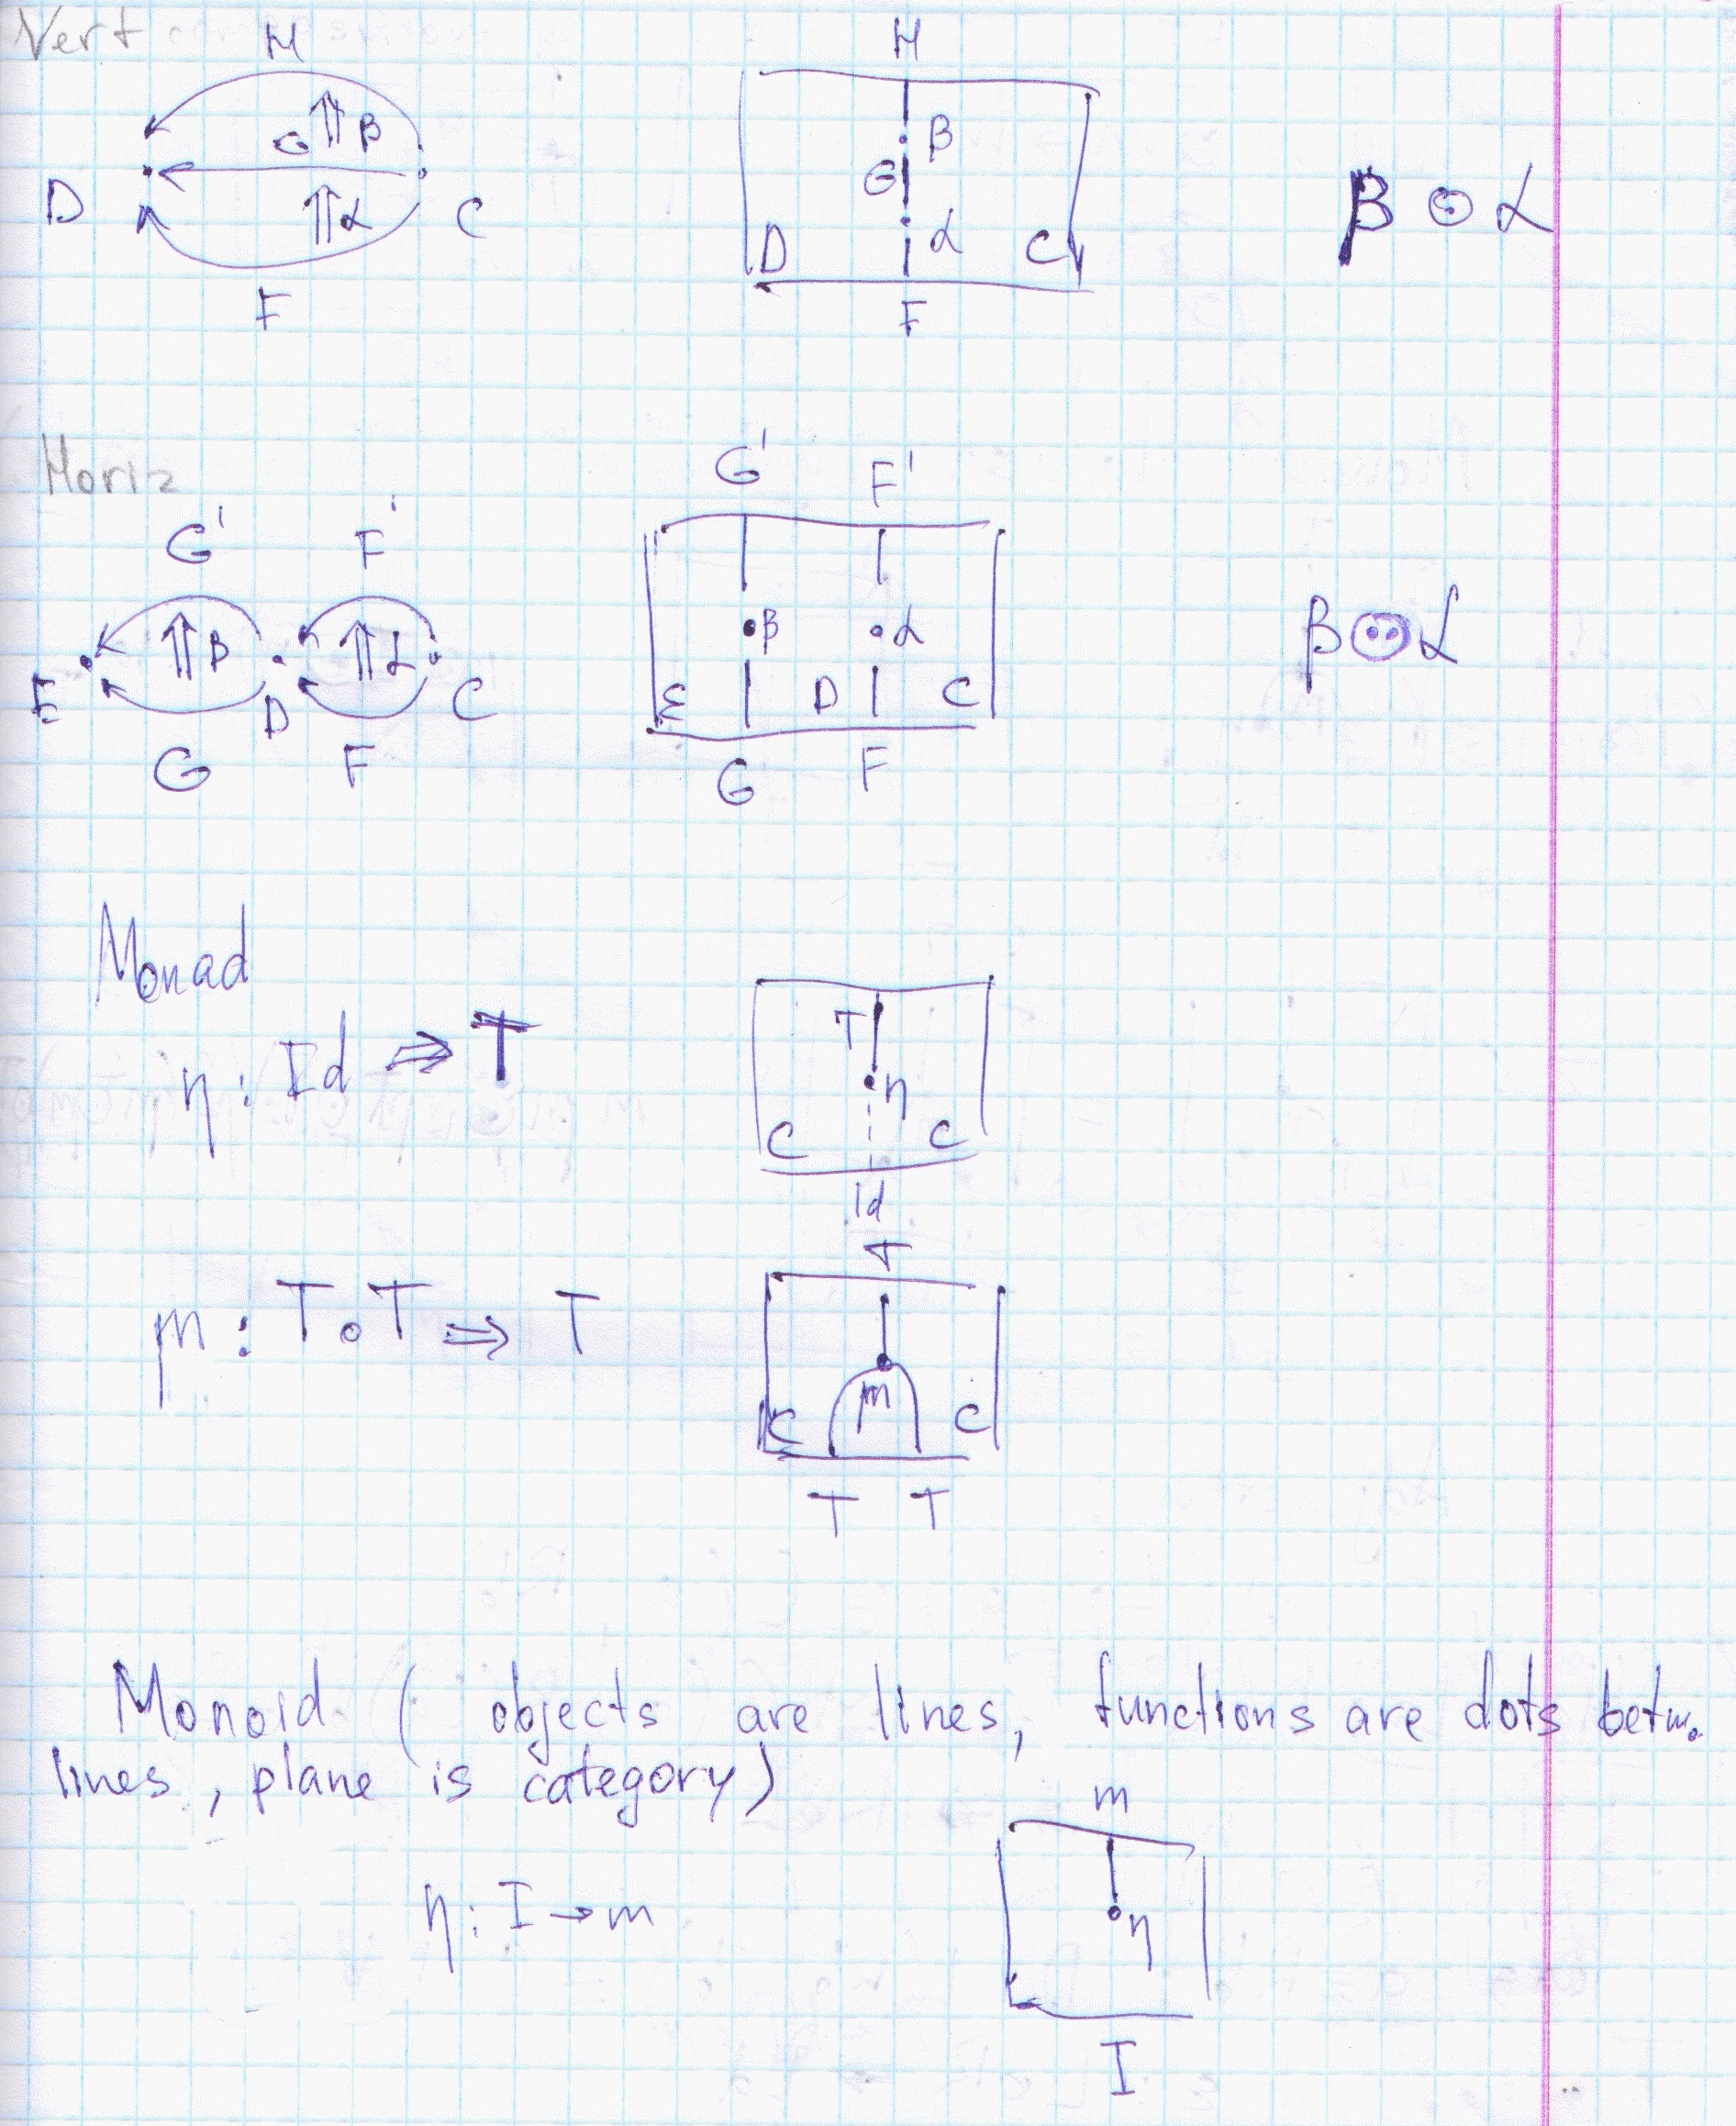 Vert
H H
G β β
G
D α C D α C β ⊙ α
F F
Horiz G' F'
G' F'
β α β α β ⊙ α
E D C E D C
G F G F
Monad
η : Id ⇒ T T η
C C
Id
T
m : T∘T ⇒ T m
C C
T T
Monoid ( objects are lines, functions are dots betw.
lines, plane is category)
m
η : I → m η
I